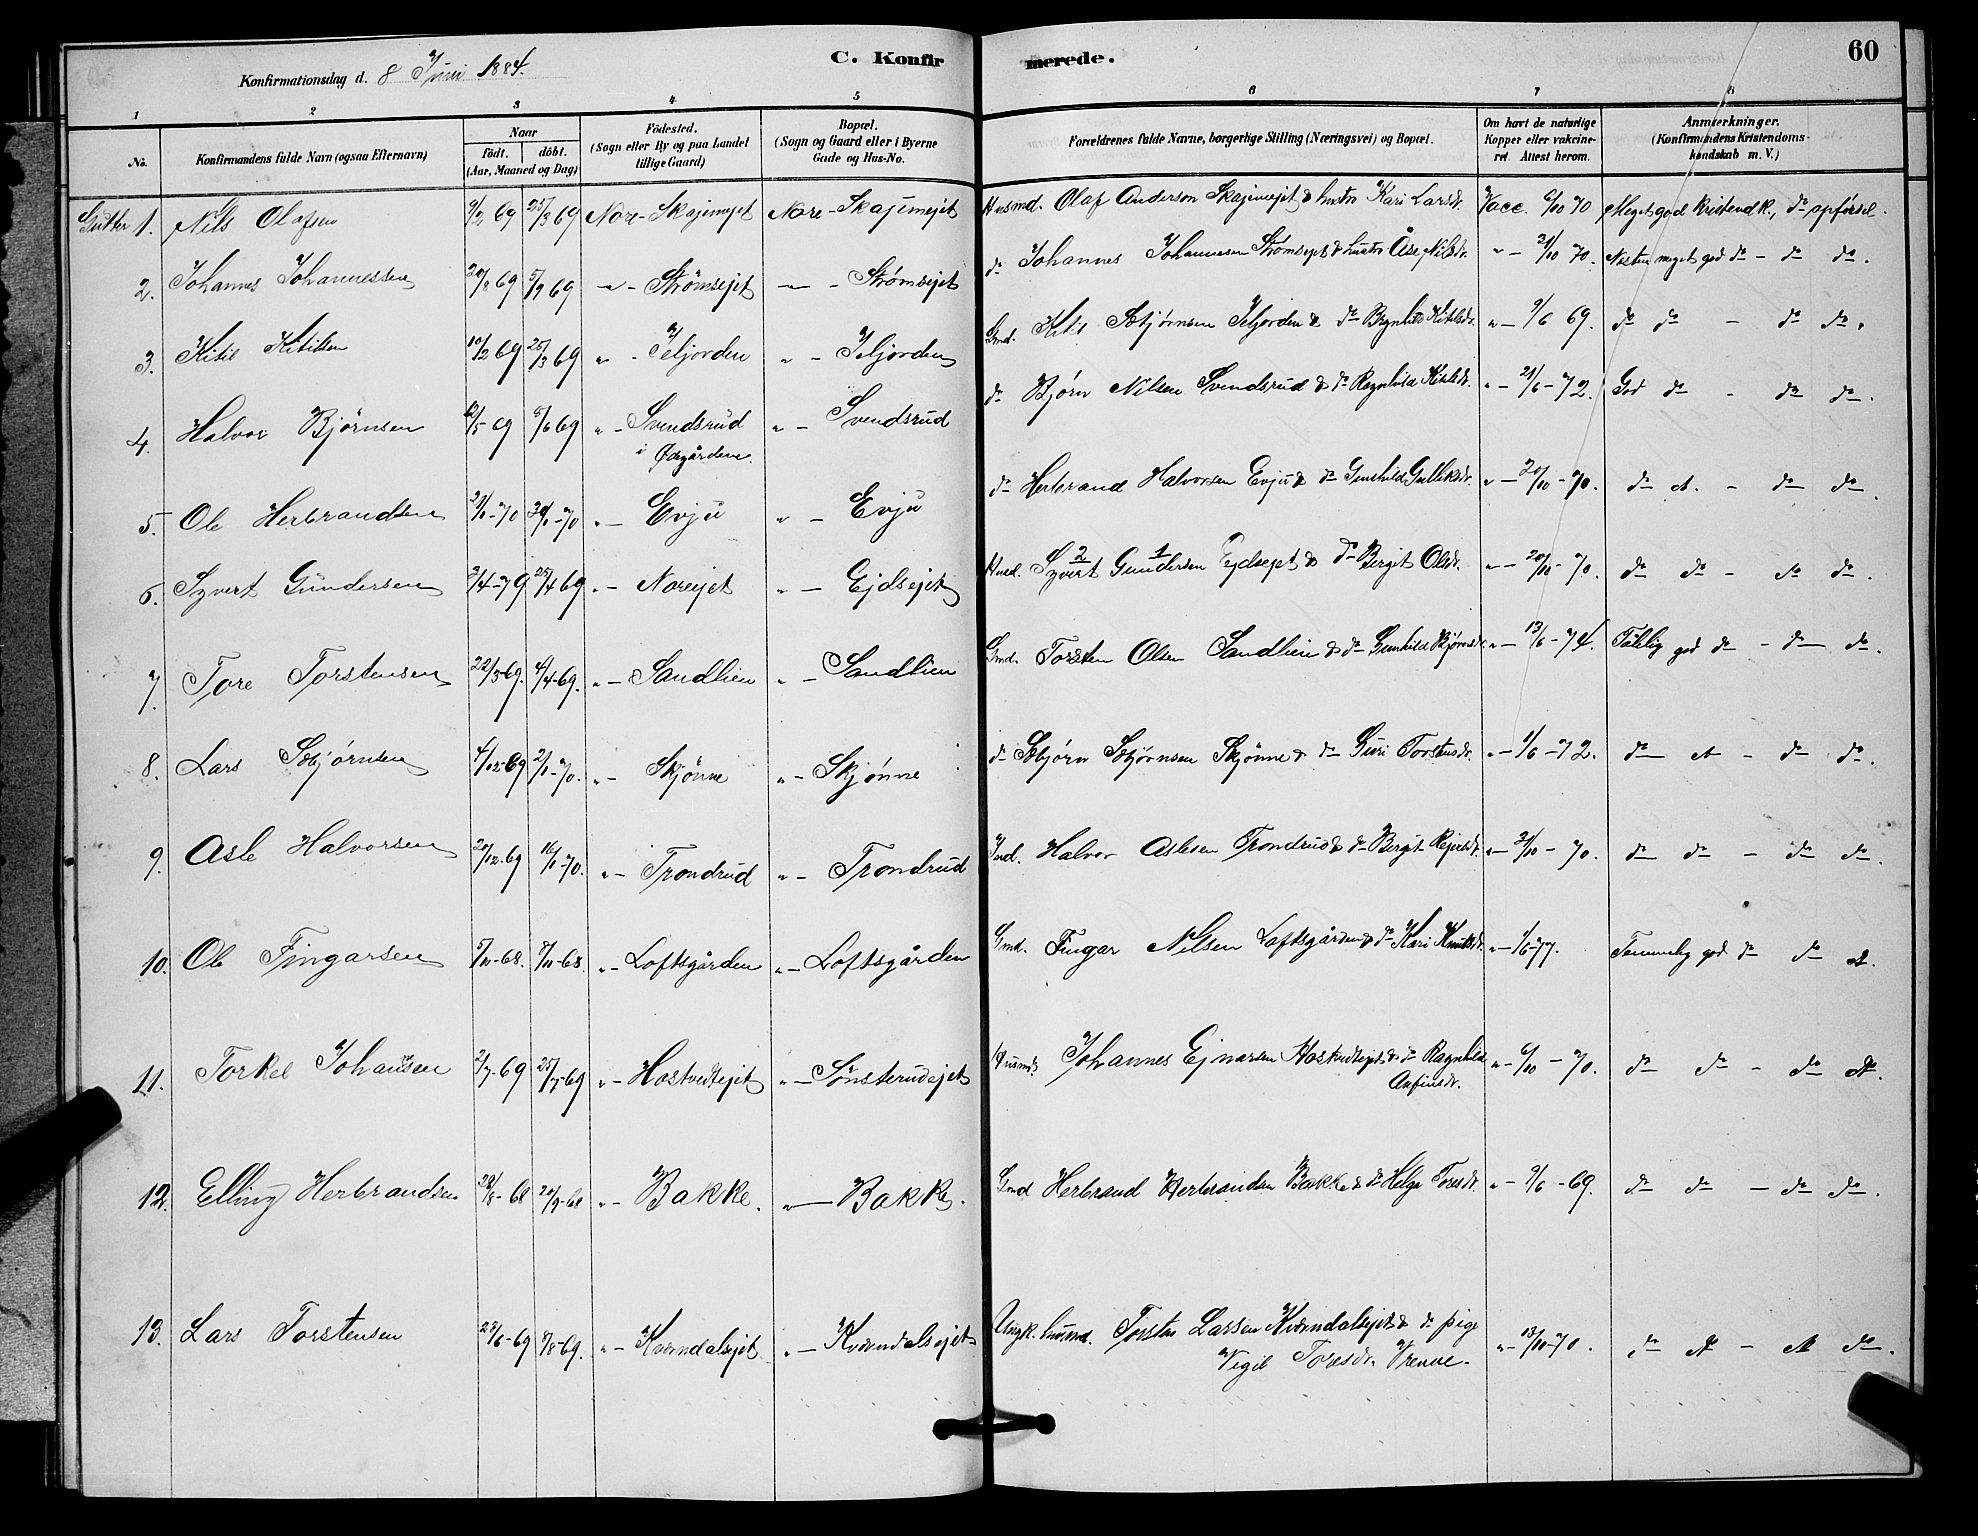 C. Konfirmerede.
60
Konfirmationsdag d. 8 Juni 1884.
1 2 3 4 5 6 7 8
No.
Konfirmandens fulde Navn (ogsaa Efternavn)
Naar
født. døbt.
(Aar, Maaned og Dag)
Födested.
(Sogn eller By og paa Landet
tillige Gaard)
Bopæl.
(Sogn og Gaard eller i Byerne
Gade og Hus-No.
Forældrenes fulde Navne, borgerlige Stilling (Næringsvei) og Bopæl.
Om havt de naturlige
Kopper eller vakcine-
ret. Attest herom.
Anmærkninger.
(Konfirmandens Kristendoms-
kundskab m. V.)
Gutter 1. Nils Olafsen 9/2 69 25/3 69 Nore - Skajemejet Nore - Skajemejet Husmd. Olaf Anderson Skajemejet & hustr Kari Larsdr. Vacc. 6/10 70 Meget god Kristendk., do opførsel.
2. Johannes Johannessen 20/8 69 5/9 69 " - Strömsejet " - Strømsejet do Johannes Johannesen Strömsejet & hustr Åse Nilsdr. " - 21/10 70. Næsten meget god do - do do.
3. Kitil Kitilsen 10/2 69 25/3 69 " - Jeljorden " - Jeljorden Gmd. Kitil Sebjørnsen Jeljorden & do Kitilsdr. " - 9/6 69. do do - do do.
4. Halvor Bjørnsen 12/5 69 8/6 69 " - Svendsrud " - Svendsrud do Bjørn Nilsen Svendsrud & do Ragnhild Kitilsdr. " - 21/6 - 72. God do - do do.
i Ødegårdene.
5. Ole Herbrandsen 21/1 - 70 30/1 - 70 " - Evju " - Evju do Herbrand Halvorsen Evju & do Gunhild Gulliksdr. " - 20/10 - 70. do do - do do.
6. Syvert Gundersen 2/4 - 79 25/4 69 " - Norejet " - Ejdsejet Hmd. Syvert 2 Gundersen 1 Ejdsejet & do Bergit Olsdr. " - 20/10 - 70. do do - do do.
7. Tore Torstensen 22/3 - 69. 4/4 - 69. " - Sandlien " - Sandlien Gmd. Torsten Olsen Sandlien & do Gunhild Bjørnsdr. " - 13/6 - 74. Tålelig god do - do do.
8. Lars Sebjørnsen 4/12 - 69 2/1 - 70. " - Skjönne " - Skjønne do Sebjørn Sebjørnsen Skjønne & do Guri Torstensdr. " - 1/6 - 72. do do - do do.
9. Asle Halvorsen 20/12 - 69 16/1 - 70. " - Trondrud " - Trondrud Ind. Halvor Aslesen Trondrud & do Bergit Rejersdr. " - 21/10 - 70. do do - do do.
10. Ole Fingarsen 5/10 - 68. 8/11 - 68. " - Loftsgården " - Loftsgården Gmd. Fingar Nilsen Loftsgården & do Kari Knutsdr. " - 1/6 - 77. Temmelig god do do do.
11. Torkel Johansen 2/7 - 69 25/7 - 69 " - Hostvedtejet " - Sönsterudejet Husmd. Johannes Ejnarsen Hostvedtejet & do Ragnhild " - 6/10 - 70. do do - do do.
Anfinsdr.
12. Elling Herbrandsen 28/8 - 68 20/9 - 68 " - Bakke. " - Bakke. Gmd Herbrand Herbrandsen Bakke & do Helge Toresdr. " - 9/6 - 69. do do - do do.
13. Lars Torstensen 28/6 - 69 8/8 - 69. " - Kværndalsejet " - Kværndalsejet Ungk. husmd. Torsten Larsen Kværndalsejet & do pige " - 13/10 - 70. do do - do do.
Vegil Toresdr. Vrenne.